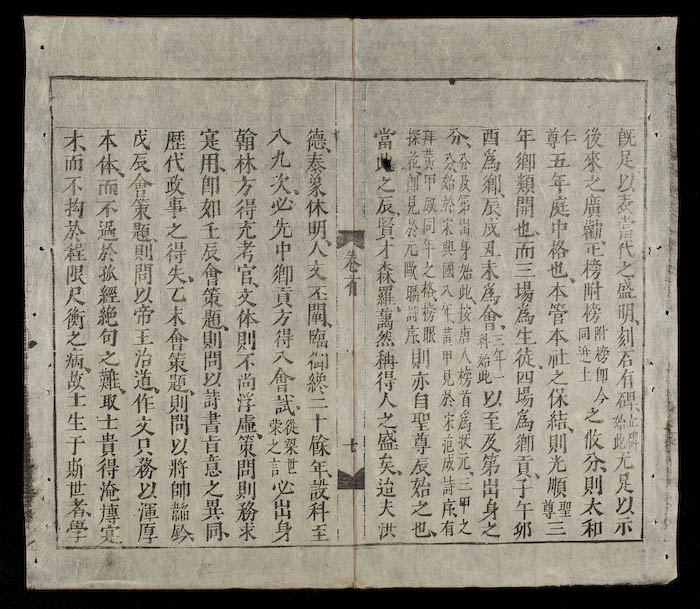 既足以表當代之盛明、刻石有碑、立碑始此尤足以示
後來之廣勸、正榜附榜附榜即今同進士之攸分、則太和
仁尊五年庭中格也、本管本社之保結、則光順聖尊三
年鄉類開也、而三場爲生徒、四場爲鄉貢、子午卯
酉爲鄉、辰戌丑未爲會、三年一科始此以至及第出身之
分、分及第出身始此按唐人榜首爲狀元、三甲之
分始於宋興國八年、黃甲見於宋范成詩序、有
拜黃甲敘同年之格、榜眼
探花郎見於元歐陽詩序、則亦自聖尊辰始之也、
當此之辰、賢才森羅、藹然稱得人之盛矣、迨夫洪
卷首
七
德、泰象休明、人文丕闡、臨御纔二十餘年、設科至
八九次、必先中鄉貢、方得入會試、從梁世榮之言必出身
翰林、方得充考官、文体則不尚浮虛、策問則務求
寔用、卽如壬辰會策題、則問以詩書旨意之異同、
歷代政事之得失、乙未會策題、則問以將帥韜鈐、
戊辰會策題、則問以帝王治道、作文只務以渾厚
本体、而不過於孤經絶句之難、取士貴得淹博寔
才、而不拘於程限尺衡之病、故士生于斯世者、學